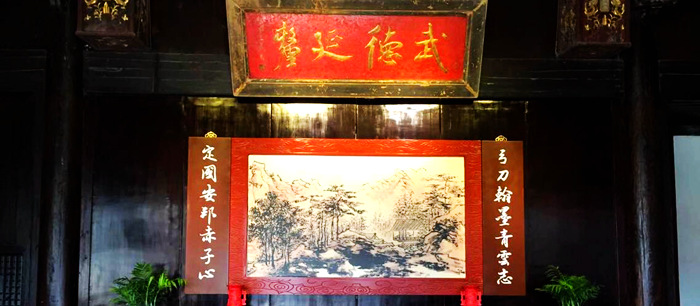 武德延釐
弓刀翰墨青雲志
定國安邦赤子心